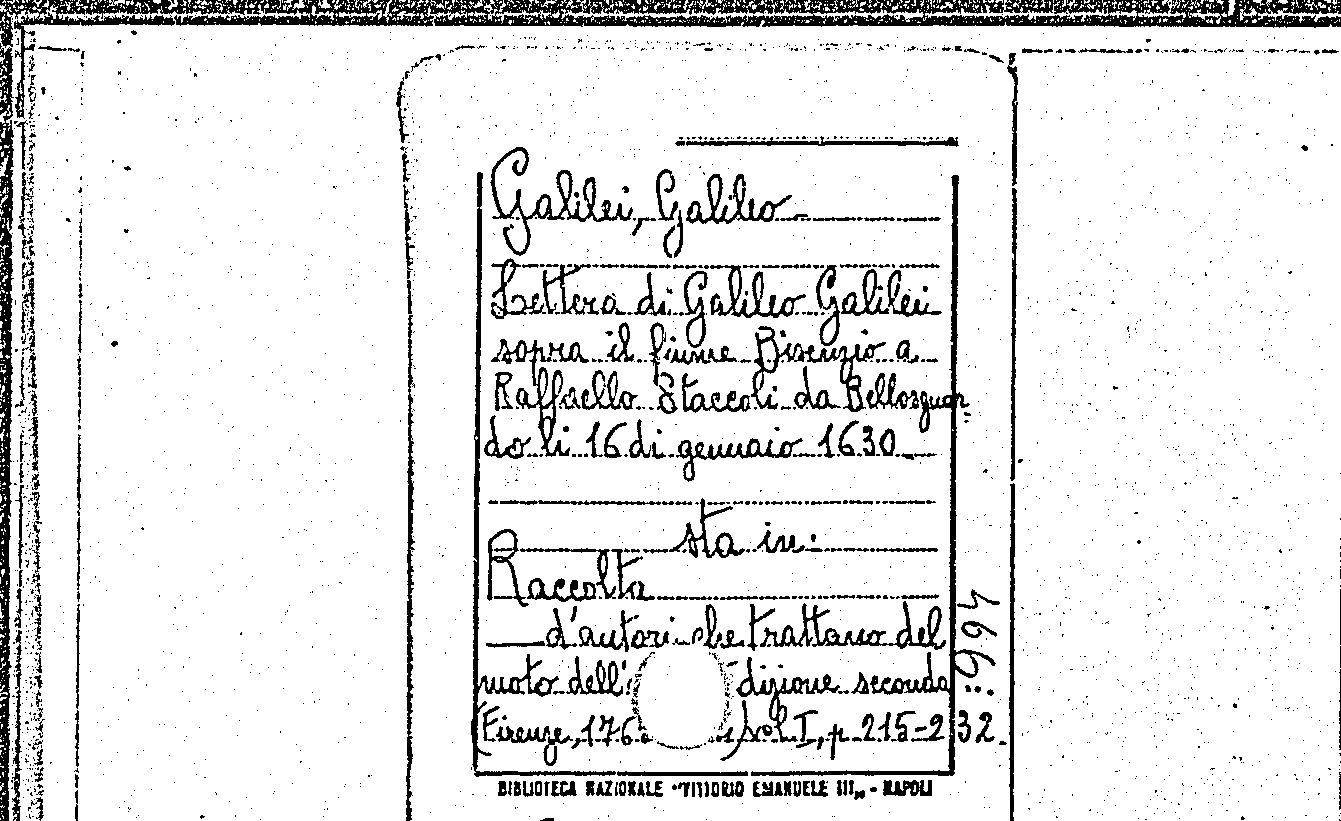 Galilei, Galileo -
Lettera di Galileo Galilei
sopra il fiume Bisenzio a
Raffaello Staccoli da Bellosguar-
do li 16 di gennaio 1630 -
sta in:
Raccolta
d'autori che trattano del
moto dell' dizione seconda
(Firenze, 176 ) vol. I, p. 215-232.
BIBLIOTECA NAZIONALE "VITTORIO EMANUELE III" - NAPOLI